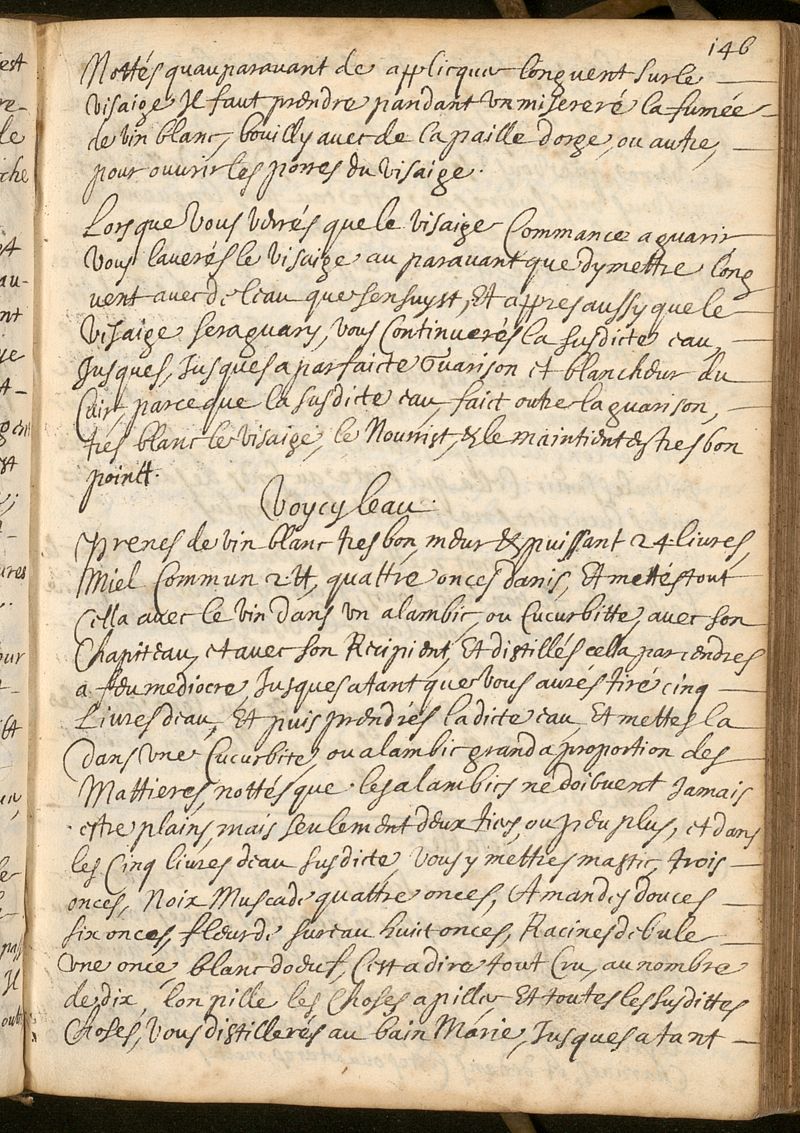 146
Nottés quauparavant de applicquer longuent sur le
visaige Il faut prendre pandant un misereré la fumée
de vin blanc, bouilly avec de la paille dorge, ou autre,
pour ouvrir les porres du visaige.
Lorsque vous verrés que le visaige Commance a guarir
vous laverés le visaige au paravant que dy mettre long
vent avec de leau que sensuyst, Et appres aussy que le
visaige sera guary, vous Continuerés la susdicte eau,
Jusques, Jusques a parfaicte Guarison et blancheur du
Cuir, parce que la susdicte eau, faict outre la guarison,
tres blanc le visaige, le Nourrist, & le maintient & tres bon
poinct.
Voycy leau.
Prenes de vin blanc tres bon, meur & puissant 24 livres,
Miel Commun 2 ℔, quattre onces danis, Et mettés tout
Cella avec le vin dans un alambic, ou Cucurbitte, avec son
Chapiteau, et avec son Recipient, Et distillés cella par cendres
a feu mediocre, Jusques a tant que vous aurés tiré cinq
Livres deau, Et puis prendrés ladicte eau, Et mettes la
dans une Cucurbite, ou alambic grand a proportion des
Mattieres, nottés que les alambics ne doibvent Jamais
estre plains, mais seulement deux tiers, ou peu plus, et dans
les Cinq livres deau susdicte, vous y mettres mastic, trois
onces, Noix Muscade quattre onces, Amandes douces
six onces, fleur de sureau huict onces, Racines debule
une once blanc doeuf, Cest a dire tout Cru, au nombre
de dix, lon pille les Choses a piller Et toutes les susdittes
Choses, vous distillerés au bain Marie, Jusques a tant